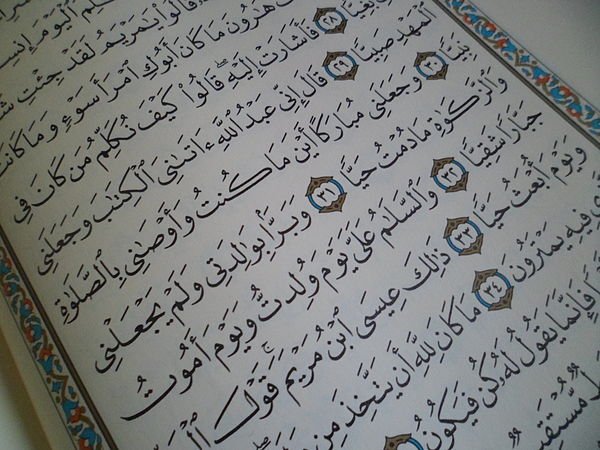 ٱلْيَوْمَ إِنسِيًّا
قَالُوا۟ يَٰمَرْيَمُ لَقَدْ جِئْتِ
هَٰرُونَ مَا كَانَ أَبُوكِ ٱمْرَأَ سَوْءٍ وَمَا كَانَتْ
بَغِيًّا ٢٨ فَأَشَارَتْ إِلَيْهِ ۖ قَالُوا۟ كَيْفَ نُكَلِّمُ مَن كَانَ فِى
ٱلْمَهْدِ صَبِيًّا ٢٩ قَالَ إِنِّى عَبْدُ ٱللَّهِ ءَاتَىٰنِىَ ٱلْكِتَٰبَ وَجَعَلَنِى
نَبِيًّا ٣٠ وَجَعَلَنِى مُبَارَكًا أَيْنَ مَا كُنتُ وَأَوْصَٰنِى بِٱلصَّلَوٰةِ
وَٱلزَّكَوٰةِ مَا دُمْتُ حَيًّا ٣١ وَبَرًّۢا بِوَٰلِدَتِى وَلَمْ يَجْعَلْنِى
جَبَّارًا شَقِيًّا ٣٢ وَٱلسَّلَٰمُ عَلَىَّ يَوْمَ وُلِدتُّ وَيَوْمَ أَمُوتُ
وَيَوْمَ أُبْعَثُ حَيًّا ٣٣ ذَٰلِكَ عِيسَى ٱبْنُ مَرْيَمَ ۚ قَوْلَ
فِيهِ يَمْتَرُونَ ٣٤ مَا كَانَ لِلَّهِ أَن يَتَّخِذَ مِن
فَإِنَّمَا يَقُولُ لَهُۥ كُن فَيَكُونُ
مُّسْتَقِيمٌ